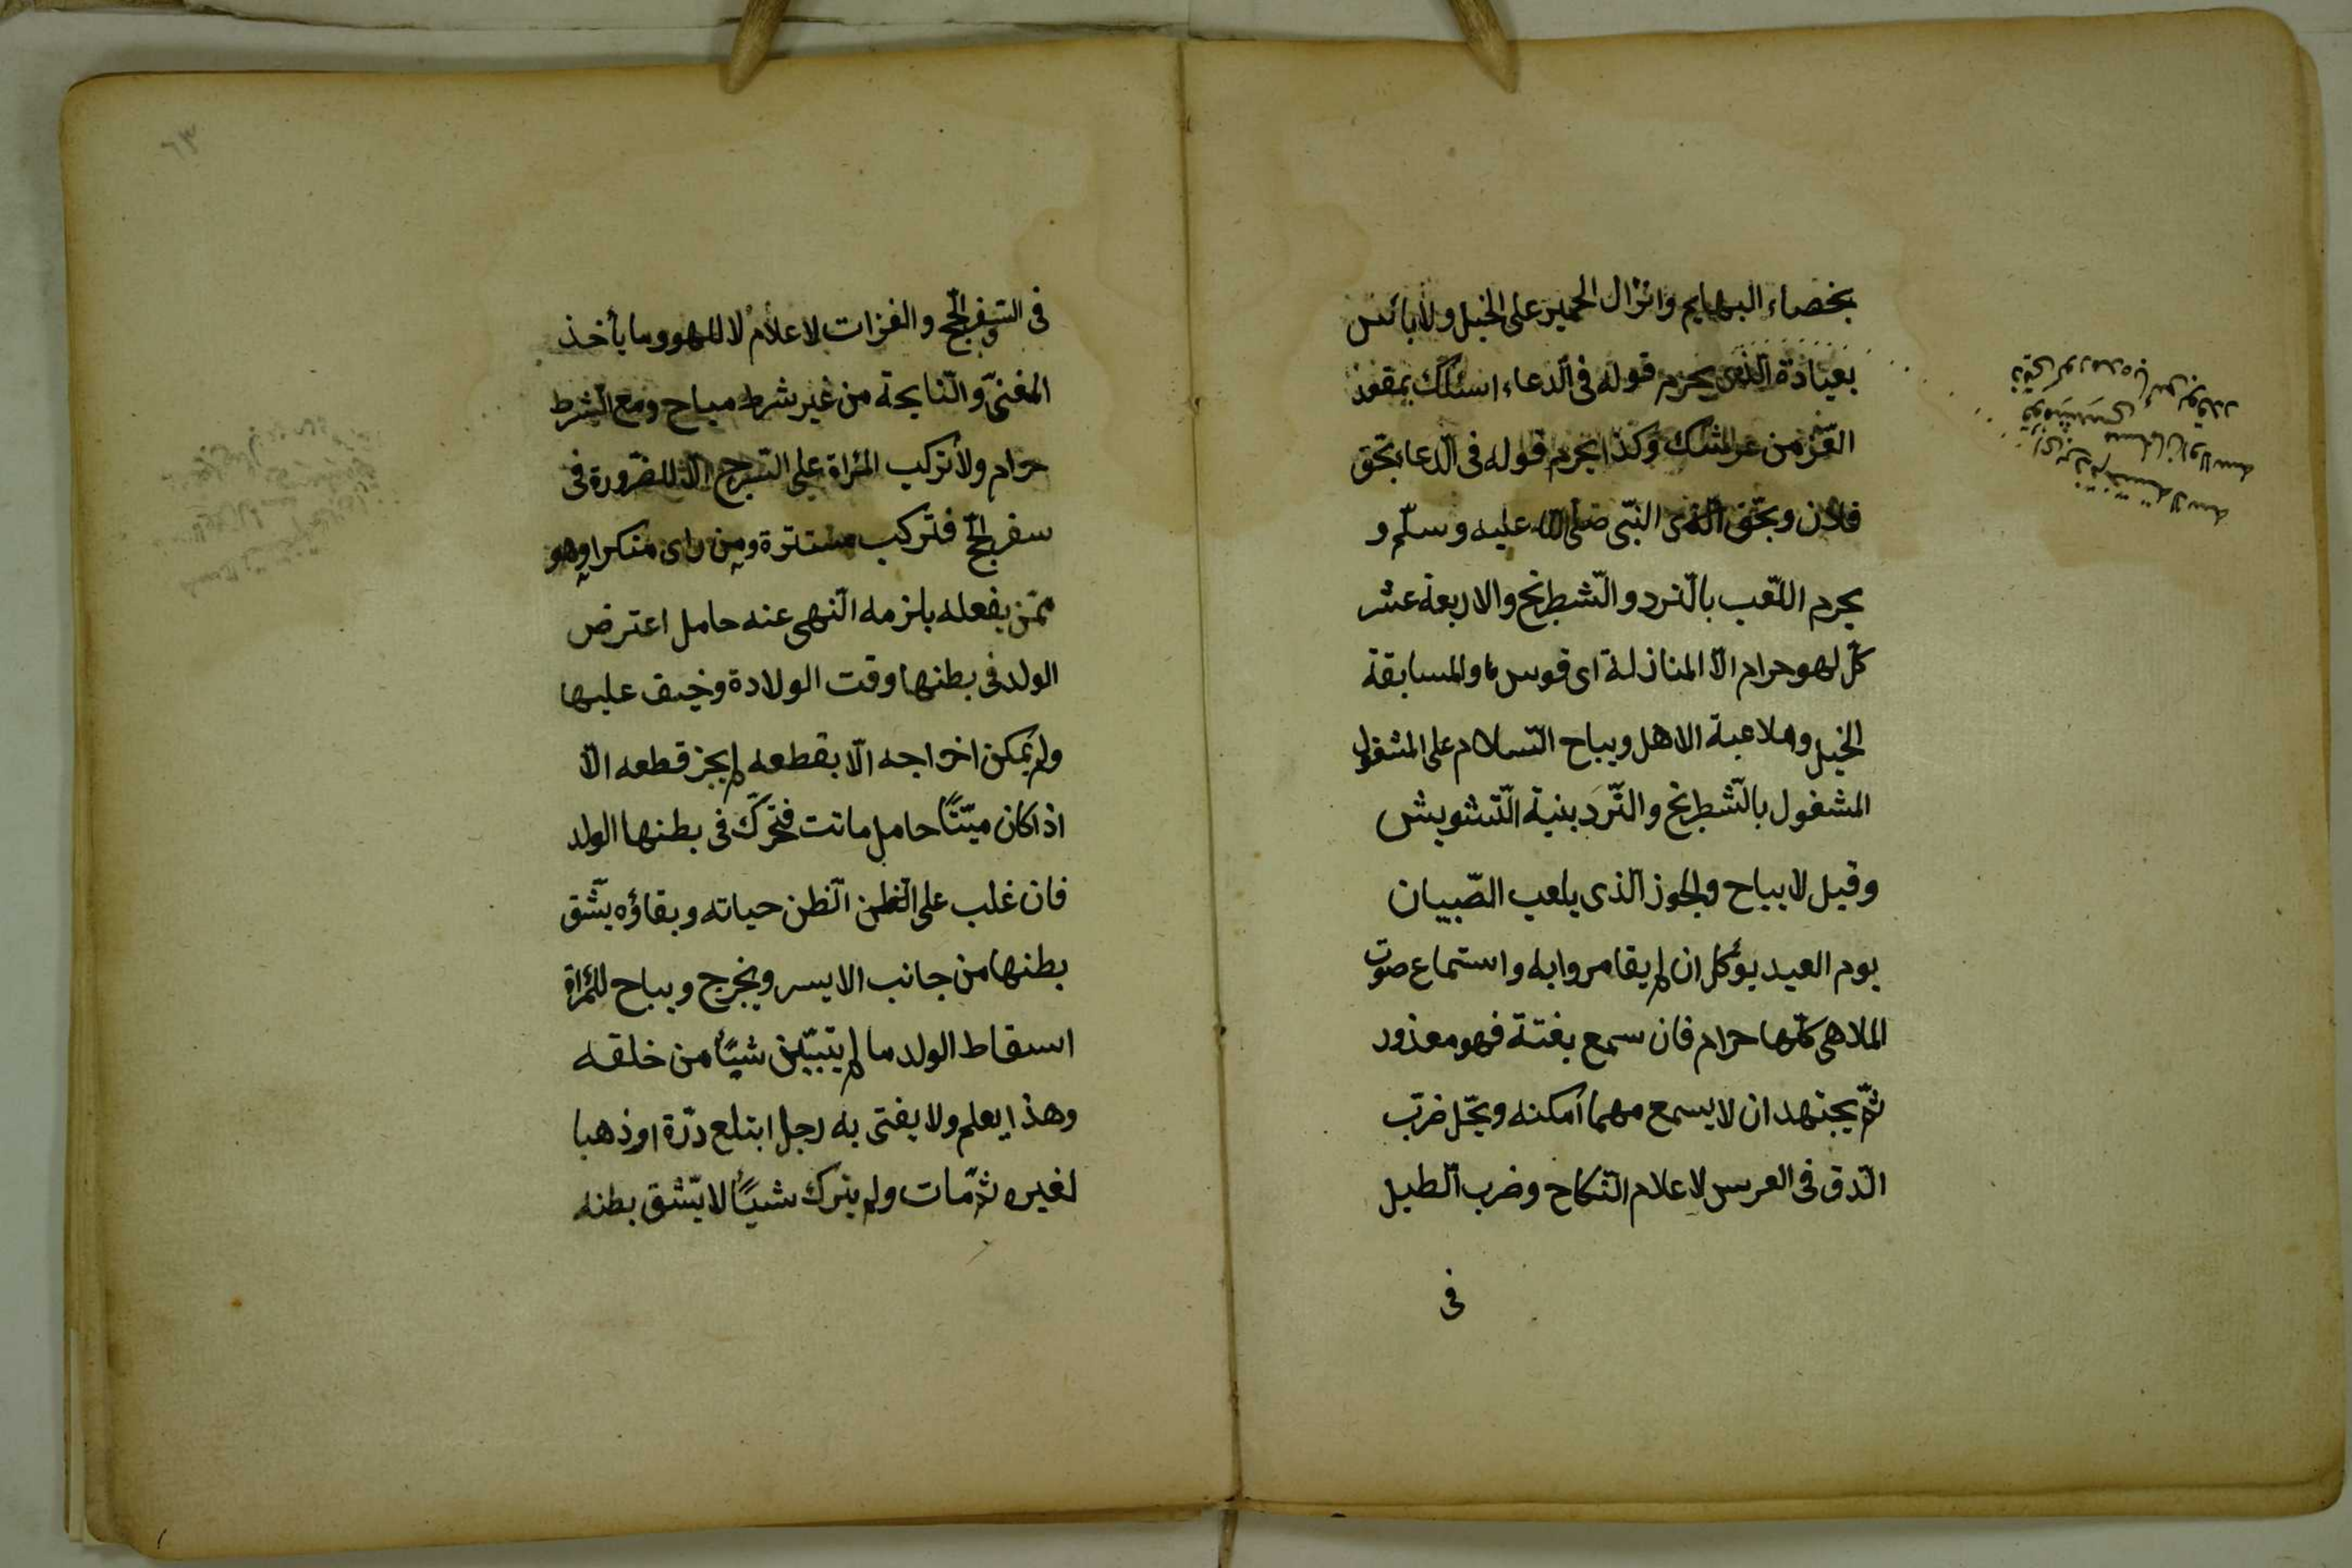 بخصاء البهايم وانزال الحمير على الخيل ولابائس
بعيادة الذمى يحرم قوله فى الدعاء اسئلك بمقعد
العّز من عرشك وكذا يحرم قوله فى الّدعا بحّق
فلان وبحّق النبّى صلى الله عليه وسلّم و
يحرم اللّعب بالّنرد والّشطرنج والاربعة عشر
كّل لهو حرام الّا المناذلة اى قوس والمسابقة
الخيل وملاعبة الاهل ويباح الّسلام على المشغول
المشغول بالّشطرنج والّنرد بنية الّتشويش
وقيل لا يباح والجوز الّذى يلعب الصّبيان
يوم العيد يؤكل ان لم يقامروا به واستماع صوت
الملاهى كلّها حرام فان سمع بغتة فهو معذور
ثّم يجتهد ان لا يسمع مهما امكنه ويحّل ضرب
الّدف فى العرس لاعلام الّنكاح وضرب الّطبل
فى
فى السفر الحّج والغزات لاعلام لا للهو وما يأخذ
المغنّى والّنايحة من غير شرط مباح ومع الّشرط
حرام ولا تركب المرأة على السرج الّا للضّرورة فى
سفر الحّج فتركب مستترة ومن راى منكرا وهو
مّمن يفعله يلزمه الّنهى عنه حامل اعترض
الولد فى بطنها وقت الولادة وخيف عليها
ولم يمكن اخراجه الّا بقطعه لم يجز قطعه الّا
اذا كان ميّتًا حامل ماتت فتحّرك فى بطنها الولد
فان غلب على الّظن الّظن حياته وبقاؤه يشّق
بطنها من جانب الايسر ويخرج ويباح للمرأة
اسقاط الولد ما لم يتبيّن شيئًا من خلقه
وهذا يعلم ولا يفتى به رجل ابتلع دّرة او ذهبا
لغيره ثّم مات ولم يترك شيئًا لا يشّق بطنه